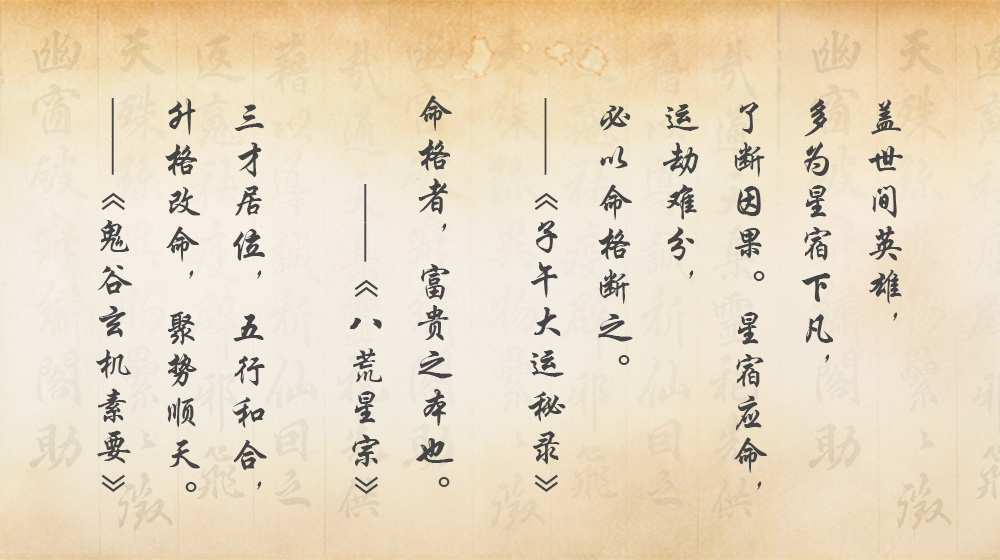 盖世间英雄，
多为星宿下凡，
了断因果。星宿应命，
运劫难分，
必以命格断之。
——《子午大运秘录》
命格者，富贵之本也。
——《八荒星宗》
三才居位，五行和合，
升格改命，聚势顺天。
——《鬼谷玄机素要》